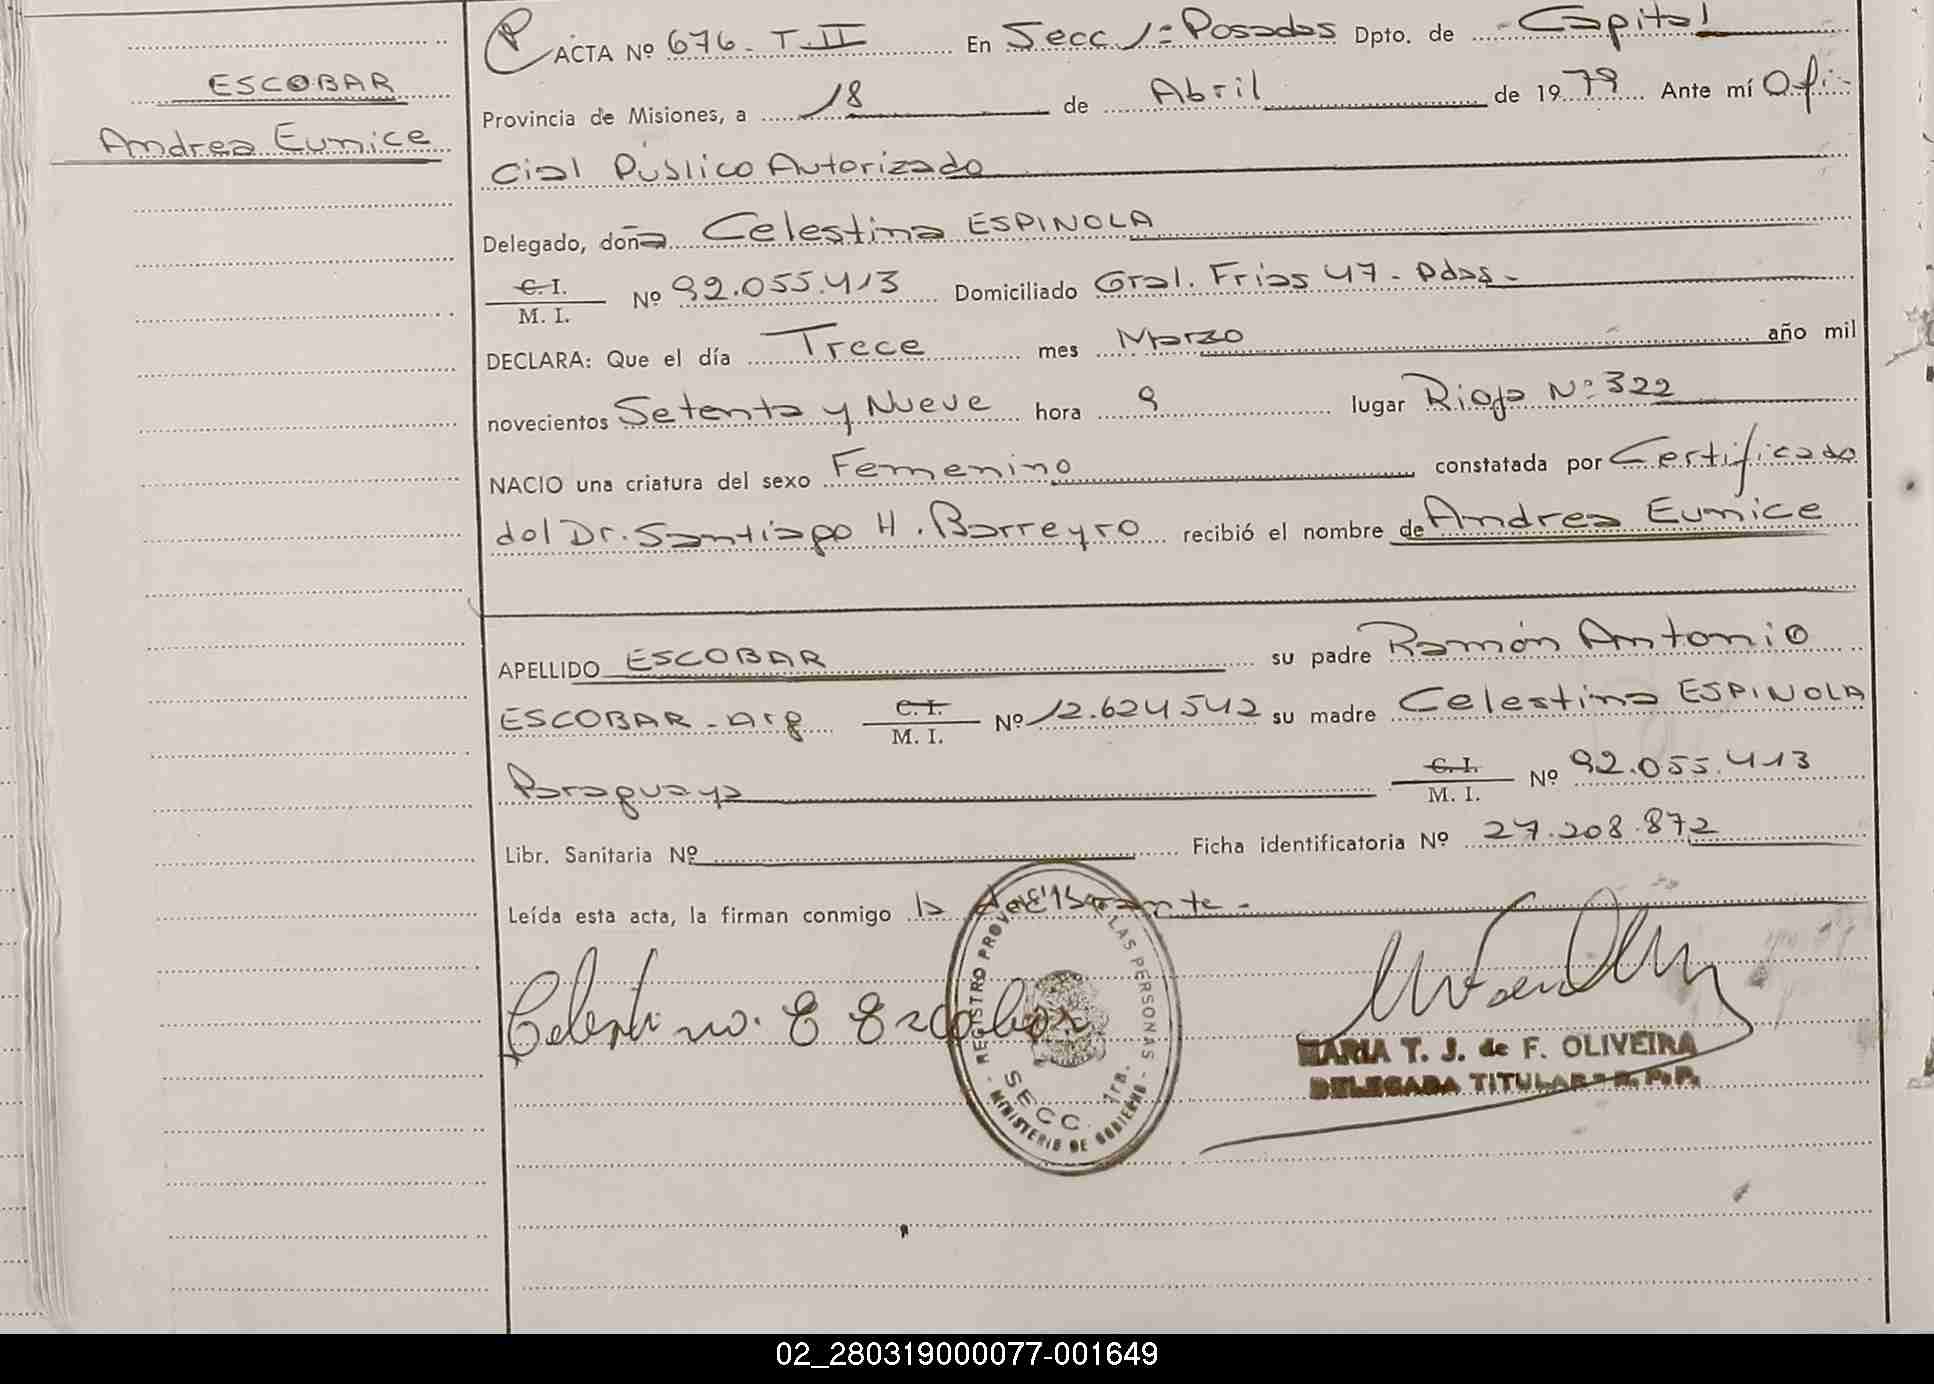 ESCOBAR
Andrea Eunice
P ACTA Nº 676 - T. II En Secc 1º Posadas Dpto. de Capital
Provincia de Misiones, a 18 de Abril de 1979 Ante mí Ofi-
cial Público Autorizado
Delegado, doña Celestina ESPINOLA
C. I. / M. I. Nº 92.055.413 Domiciliado Gral. Frias 47 - Pdas -
DECLARA: Que el día Trece mes Marzo año mil
novecientos Setenta y Nueve hora 9 lugar Rioja Nº 322
NACIO una criatura del sexo Femenino constatada por Certificado
del Dr. Santiago H. Barreyro recibió el nombre de Andrea Eunice
APELLIDO ESCOBAR su padre Ramón Antonio
ESCOBAR - Arg C. I. / M. I. Nº 12.624542 su madre Celestina ESPINOLA
Paraguaya C. I. / M. I. Nº 92.055.413
Libr. Sanitaria Nº Ficha identificatoria Nº 27.208.872
Leída esta acta, la firman conmigo la declarante -
Celestina E Escobar
REGISTRO PROVINCIAL LAS PERSONAS
SECC. 1ra.
MINISTERIO DE GOBIERNO
MARIA T. J. de F. OLIVEIRA
DELEGADA TITULAR R. P. P.
02_280319000077-001649